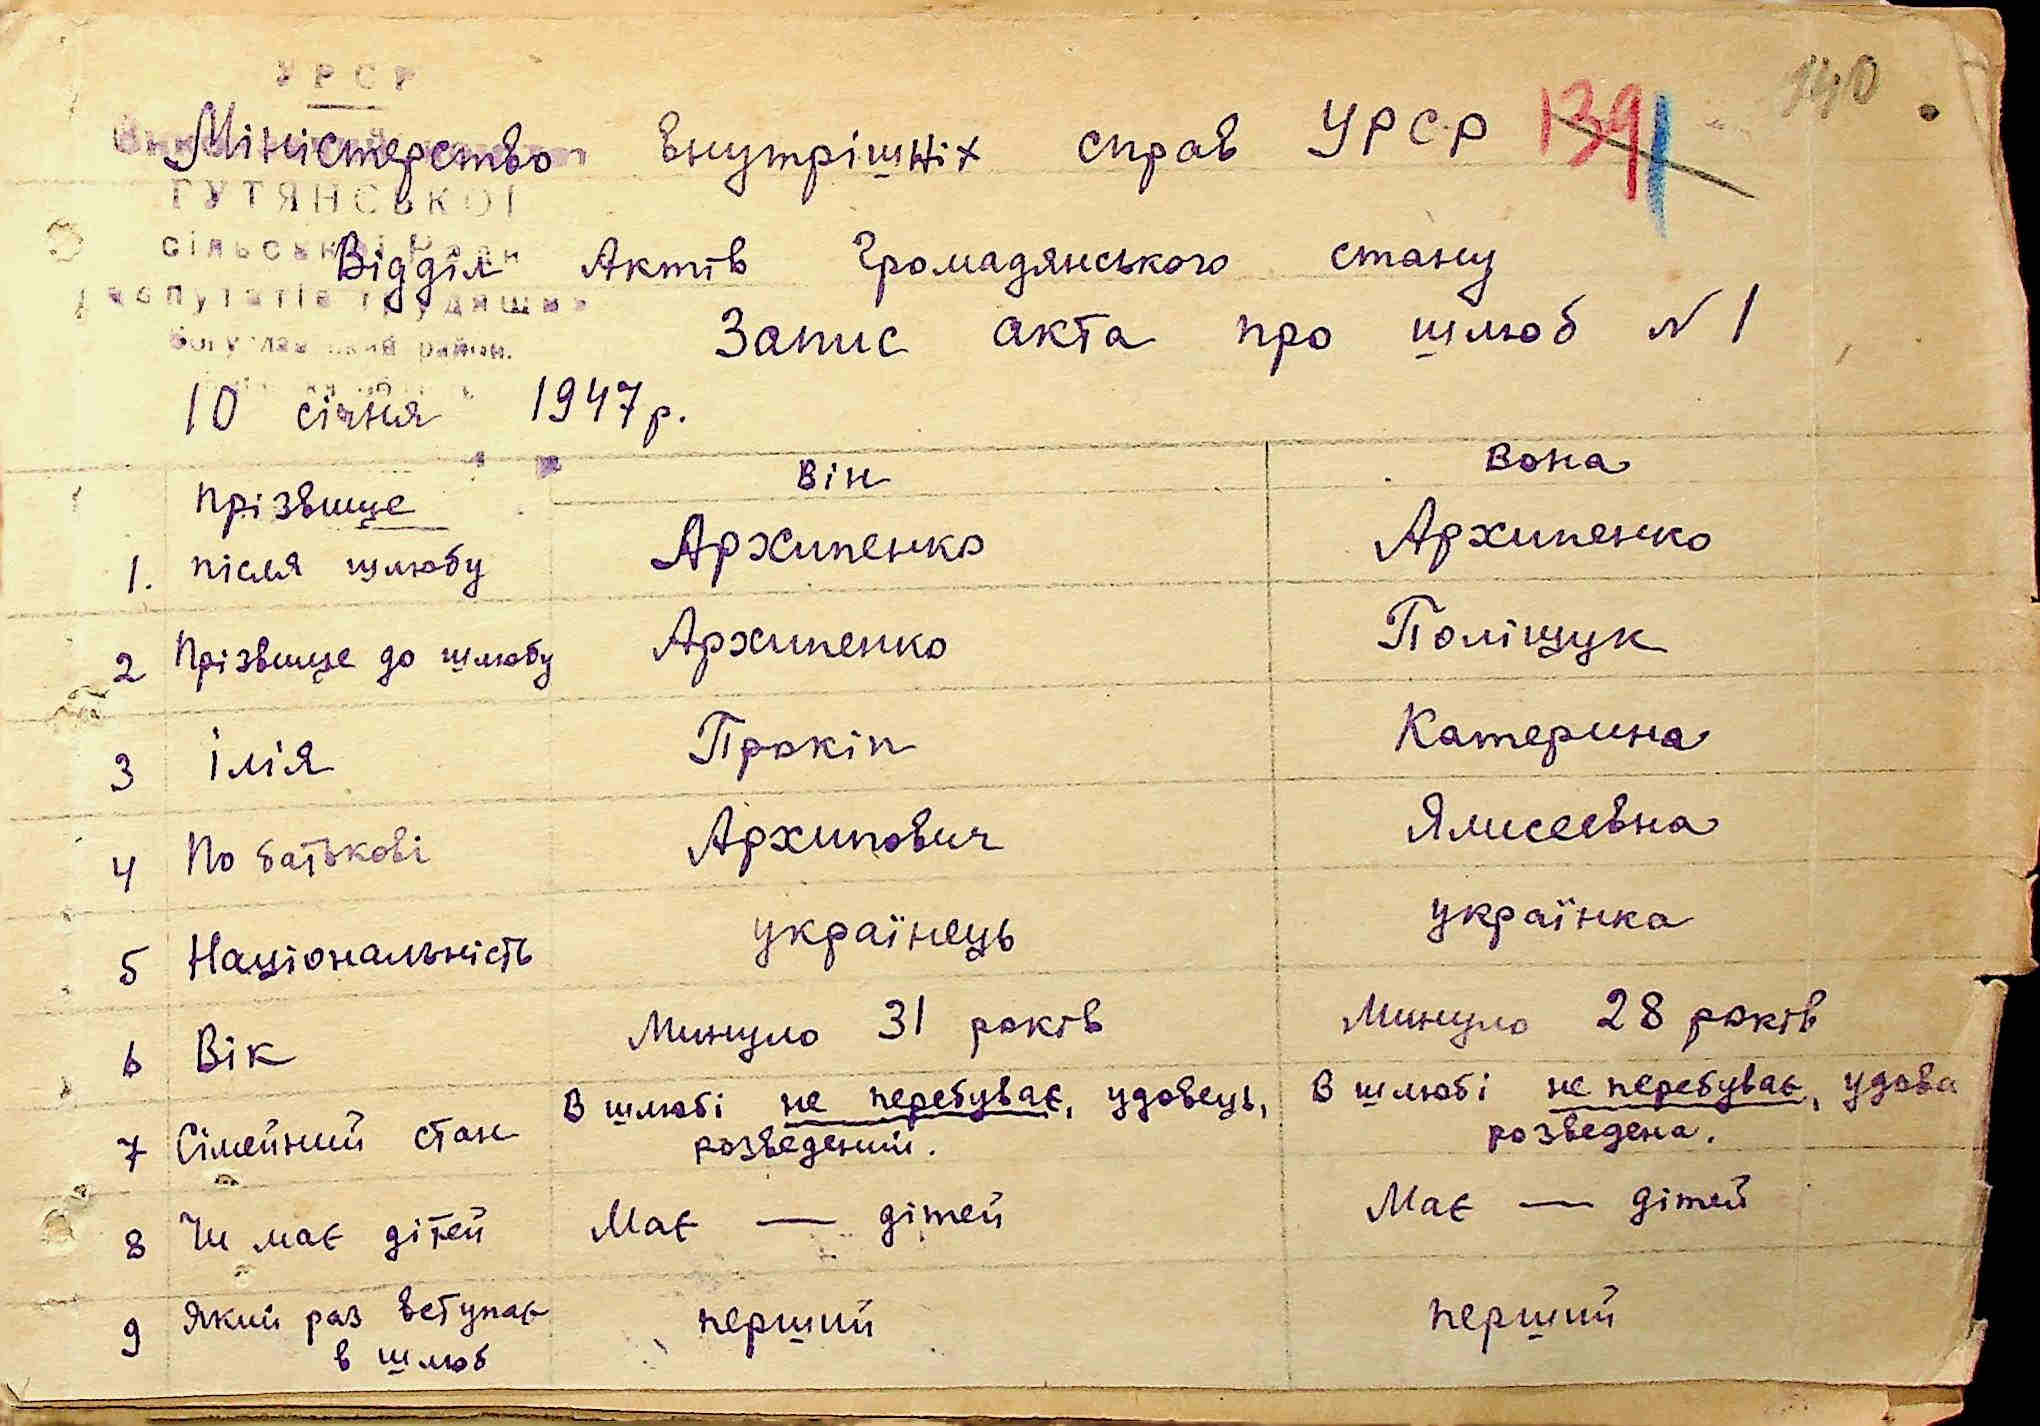 УРСР
139
140
Міністерство внутрішніх справ УРСР
ГУТЯНСЬКОЇ
сільської Ради
Відділ Актів Громадянського стану
депутатів трудящих
Запис акта про шлюб N 1
Богуславський район.
10 січня 1947 р.
він вона
1. Прізвище
після шлюбу Архипенко Архипенко
2 Прізвище до шлюбу Архипенко Поліщук
3 Імія Прокіп Катерина
4 По батькові Архипович Ялисеєвна
5 Національність українець українка
6 Вік Минуло 31 років Минуло 28 років
7 Сімейний стан В шлюбі не перебуває, удовець, розведений. В шлюбі не перебуває, удова розведена.
8 Чи має дітей Має — дітей Має — дітей
9 Який раз вступає
в шлюб перший перший